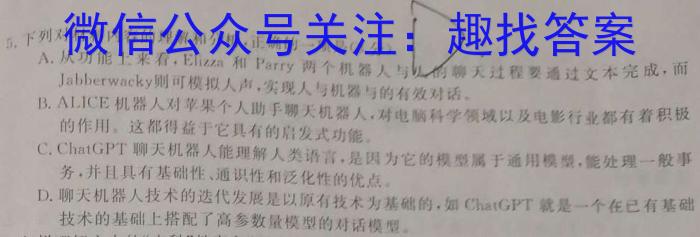 微信公众号关注：趣找答案
5. 下列对
A. 从功能上来看，Elizza 和 Parry 两个机器人与人的聊天过程要通过文本完成，而
Jabberwacky则可模拟人声，实现人与机器与的有效对话。
B. ALICE 机器人对苹果个人助手聊天机器人，对电脑科学领域以及电影行业都有着积极
的作用。这都得益于它具有的启发式功能。
C. ChatGPT 聊天机器人能理解人类语言，是因为它的模型属于通用模型，能处理一般事
务，并且具有基础性、通识性和泛化性的优点。
D. 聊天机器人技术的迭代发展是以原有技术为基础的，如 ChatGPT 就是一个在已有基础
技术的基础上搭配了高参数量模型的对话模型。